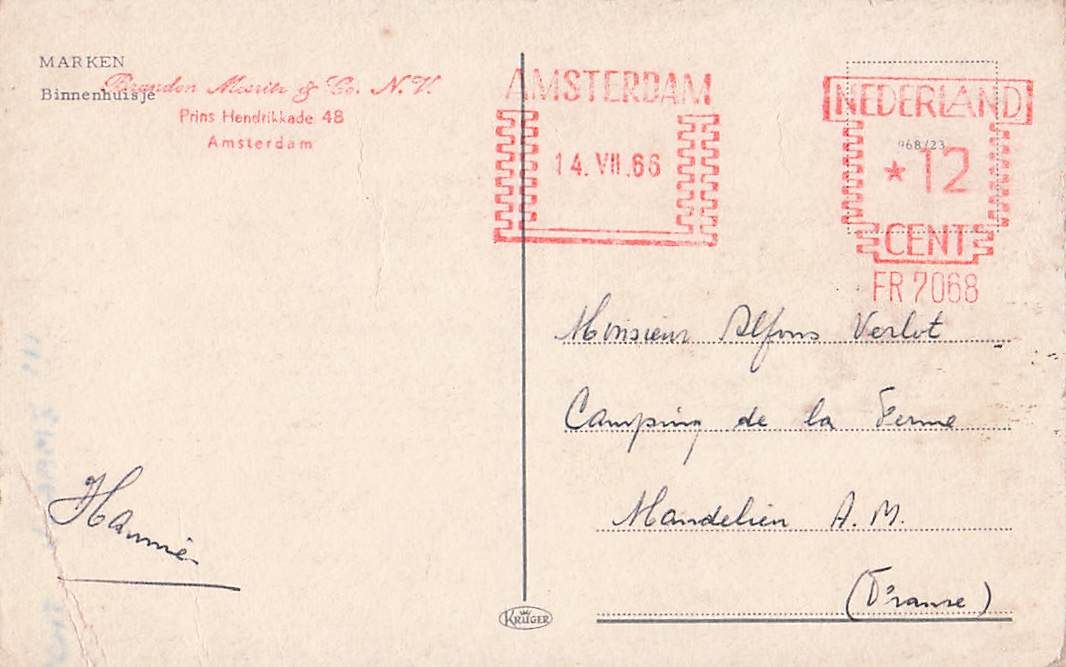 MARKEN
Binnenhuisje
Brandon Mesritz & Co. N.V.
Prins Hendrikkade 48
Amsterdam
AMSTERDAM
14.VII.66
NEDERLAND
968/23
* 12
CENT
FR 7068
Monsieur Alfons Verlot
Camping de la Ferme
Mandelieu A.M.
(France)
Hannie
KRÜGER